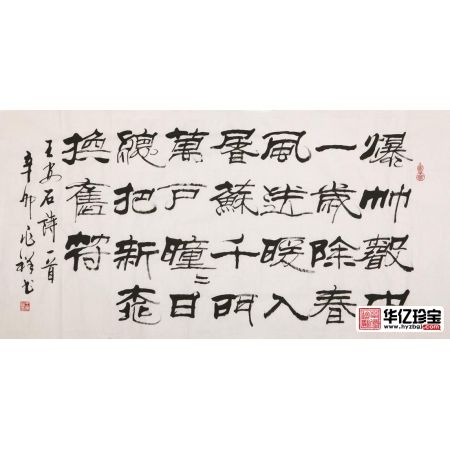 爆竹聲中
一歲除春
風送暖入
屠蘇千門
萬戶曈〻日
總把新桃
換舊符
王安石詩一首
辛卯兆祥书
华亿珍宝